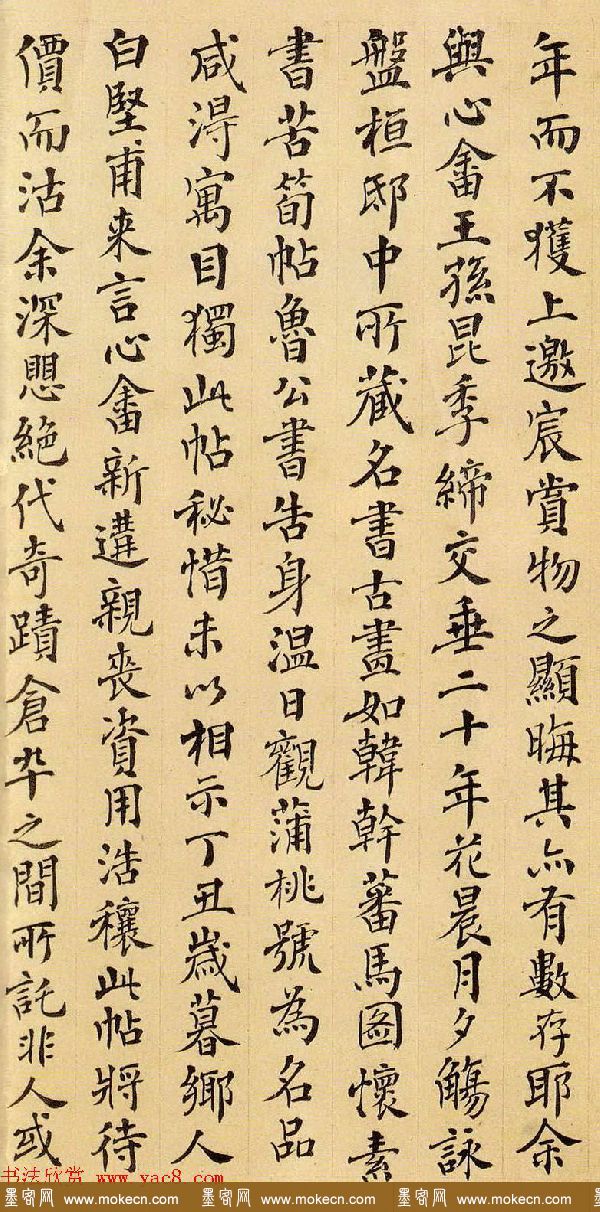 年而不獲上邀宸賞物之顯晦其亦有數存耶余
與心畬王孫昆季締交垂二十年花晨月夕觴詠
盤桓邸中所藏名書古畫如韓幹蕃馬圖懷素
書苦筍帖魯公書告身溫日觀蒲桃號為名品
咸得寓目獨此帖秘惜未以相示丁丑歲暮鄉人
白堅甫来言心畬新遘親喪資用浩穰此帖將待
價而沽余深懼絕代奇蹟倉卒之間所託非人或
书法欣赏 www.yac8.com
墨客网 www.mokecn.com 墨客网 www.mokecn.com 墨客网 www.mokecn.com